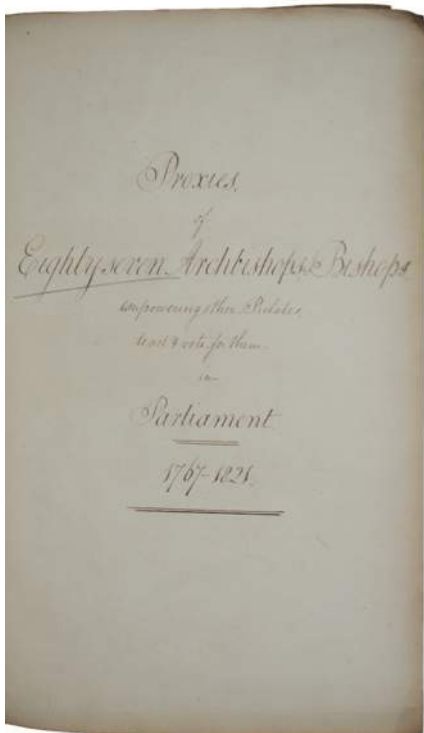 Proxies,
of
Eighty seven Archbishops & Bishops
empowering other Prelates,
to act & vote for them
in
Parliament
1767-1821.